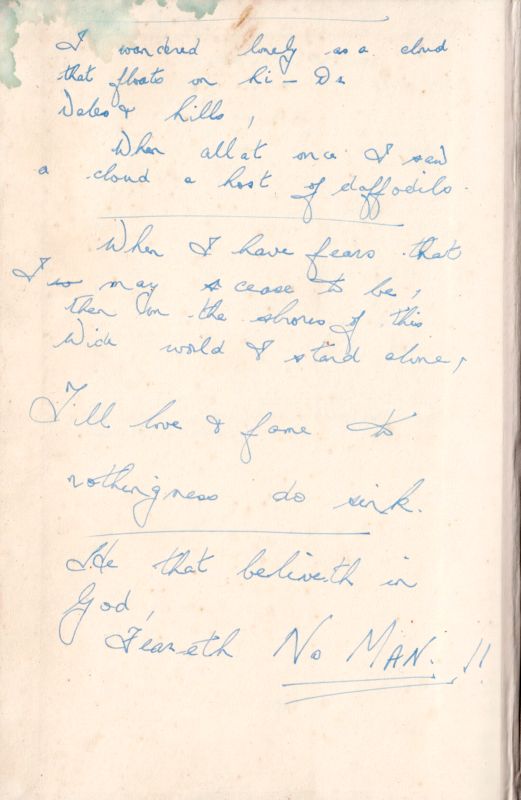 I wandered lonely as a cloud
that floats on hi - De
Vales & hills,
When all at once I saw
a cloud a host of daffodils.
When I have fears that
I may cease to be,
then on the shores of this
Wide world I stand alone,
Till love & fame to
nothingness do sink.
He that beliveth in
God,
Feareth No MAN.!!